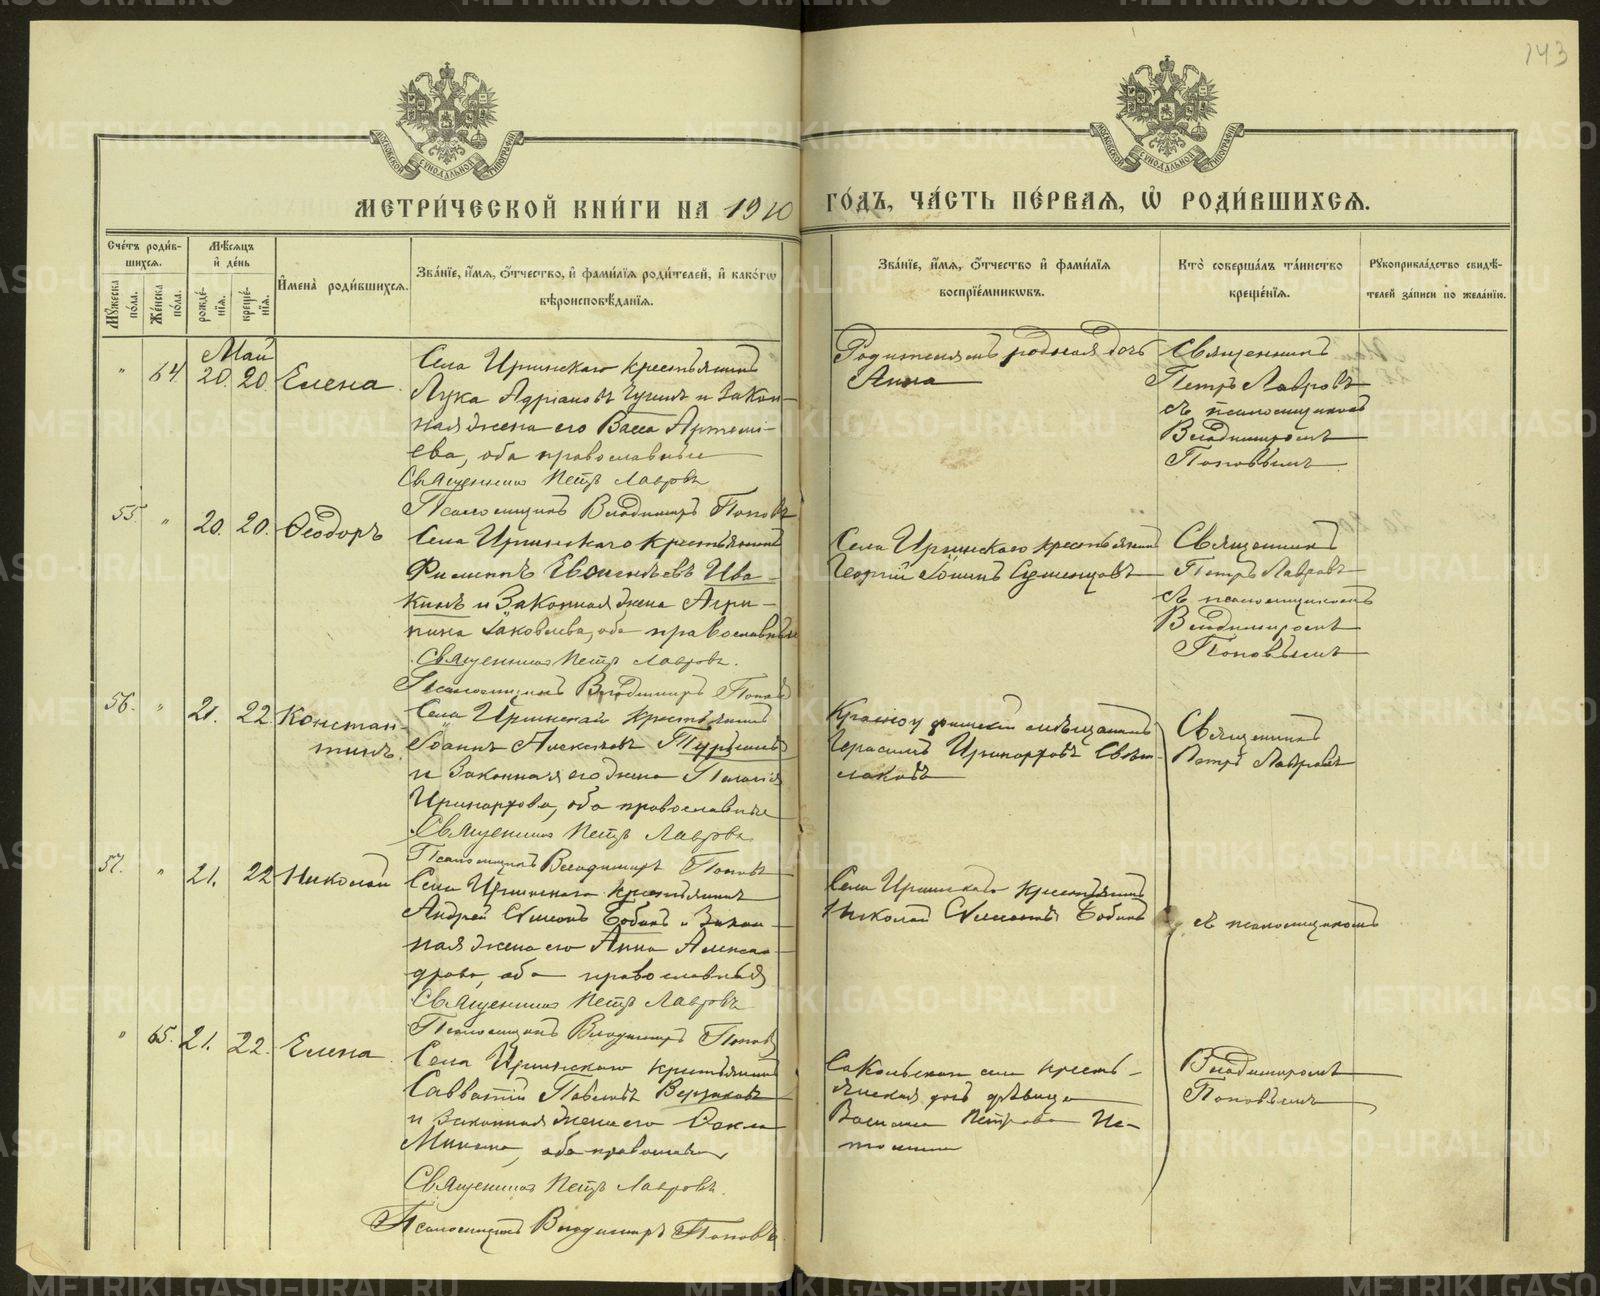 143
МОСКОВСКОЙ СѴНОДАЛЬНОЙ ТИПОГРАФІИ
МОСКОВСКОЙ СѴНОДАЛЬНОЙ ТИПОГРАФІИ
МЕТРИ́ЧЕСКОЙ КНИ́ГИ НА 1910 ГО́ДЪ, ЧА́СТЬ ПЕ́РВАЯ, Ѡ҆ РОДИ́ВШИХСЯ.
Сче́тъ роди́в-
шихся.
Мꙋ́жеска по́ла.
Же́нска по́ла.
Мѣ́сяцъ
и҆ де́нь
рожде́-
нїя.
креще́-
нїя.
И҆мена̀ роди́вшихся.
Зва́нїе, и҆́мя, ѻ҆́тчество, и҆ фами́лїя роди́телей, и҆ како́гѡ
вѣроисповѣ́данїя.
Зва́нїе, и҆́мя, ѻ҆́тчество и҆ фами́лїя
воспрїе́мникѡвъ.
Кто̀ соверша́лъ та́инство
креще́нїя.
Рꙋкоприкла́дство свидѣ́-
телей за́писи по жела́нїю.
" 64. Май 20. 20. Елена.
Села Иргинскаго крестьянинъ
Лука Адріановъ и закон-
ная жена его Васса Артемі-
ева, оба православные
Священникъ Петръ Лавровъ
Псаломщикъ Владимиръ Поповъ
Родителямъ родная дочь
Анна
Священникъ
Петръ Лавровъ
съ псаломщикомъ
Владимиромъ
Поповымъ
55. " 20. 20. Ѳеодоръ
Села Иргинскаго крестьянинъ
Филиппъ Ива-
кинъ и законная жена Агри-
пина Іаковлева, оба православные
Священникъ Петръ Лавровъ.
Псаломщикъ Владимиръ Поповъ
Села Иргинскаго крестьянинъ
Георгій
Священникъ
Петръ Лавровъ
съ псаломщикомъ
Владимиромъ
Поповымъ
56. " 21. 22. Констан-
тинъ.
Села Иргинскаго крестьянинъ
Іоаннъ Алексѣевъ
и законная его жена Пелагія
Иринархова, оба православные
Священникъ Петръ Лавровъ
Псаломщикъ Владимиръ Поповъ
Красноуфимскій мѣщанинъ
Герасимъ Иринарховъ Свѣт-
лаковъ
Священникъ
Петръ Лавровъ
57. " 21. 22 Николай
Села Иргинскаго крестьянинъ
Андрей Бобинъ и закон-
ная жена его Анна Алексан-
дрова, оба православныя
Священникъ Петръ Лавровъ
Псаломщикъ Владимиръ Поповъ
Села Иргинскаго крестьянинъ
Николай Бобинъ
съ псаломщикомъ
" 65. 21. 22. Елена.
Села Иргинскаго крестьянинъ
Савватій Павловъ
и законная жена его Ѳекла
Минина, оба православн
Священникъ Петръ Лавровъ.
Псаломщикъ Владимиръ Поповъ.
села кресть-
янская дочь дѣвица
Петрова
Владимиромъ
Поповымъ
METRIKI.GASO-URAL.RU